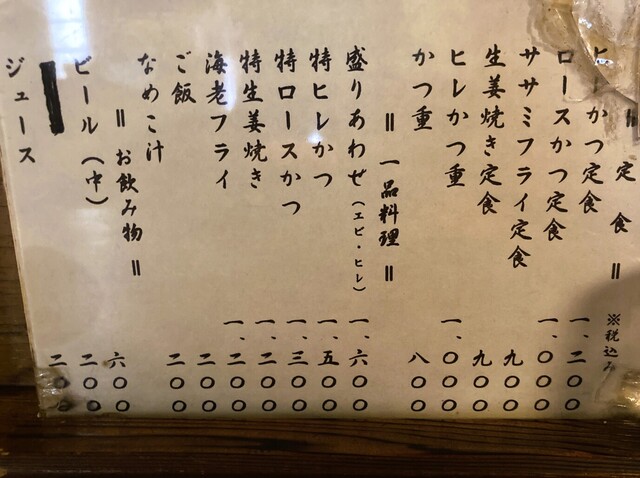 〓 定食 〓 ※税込み
ヒレかつ定食 一、二〇〇
ロースかつ定食 一、〇〇〇
ササミフライ定食 九〇〇
生姜焼き定食 九〇〇
ヒレかつ重 一、〇〇〇
かつ重 八〇〇
〓 一品料理 〓
盛りあわせ(エビ・ヒレ) 一、六〇〇
特ヒレかつ 一、五〇〇
特ロースかつ 一、三〇〇
特生姜焼き 一、二〇〇
海老フライ 一、二〇〇
ご飯 二〇〇
なめこ汁 二〇〇
〓 お飲み物 〓
ビール(中) 六〇〇
二〇〇
ジュース 二〇〇